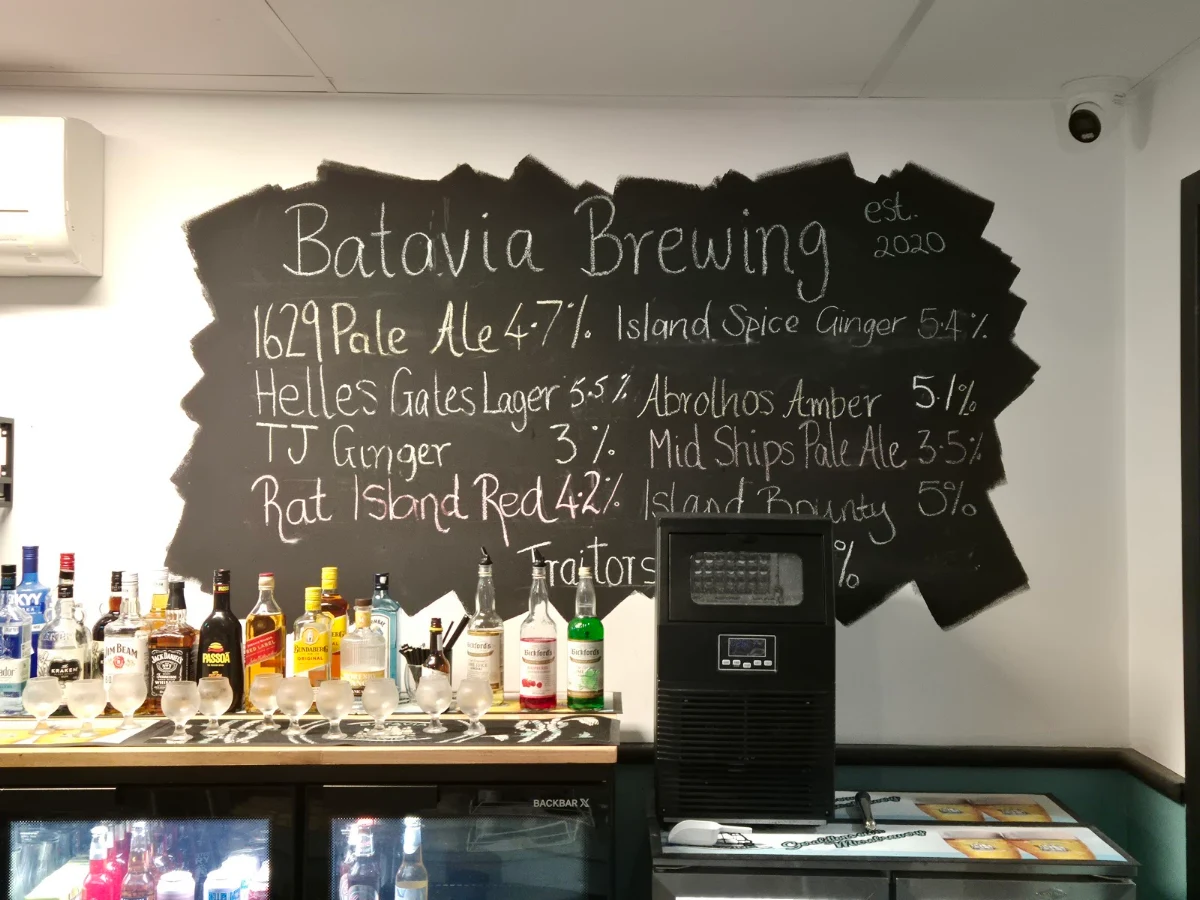 Batavia Brewing est. 2020
1629 Pale Ale 4.7% Island Spice Ginger 5.4%
Helles Gates Lager 5.5% Abrolhos Amber 5.1%
TJ Ginger 3% Mid Ships Pale Ale 3.5%
Rat Island Red 4.2% Island Bounty 5%
Traitors %
SKYY
JIM BEAM
KRAKEN
JACK DANIEL'S
PASSOÃ
RED LABEL
BUNDABERG
Bickford's
Bickford's
Bickford's
BACKBAR X